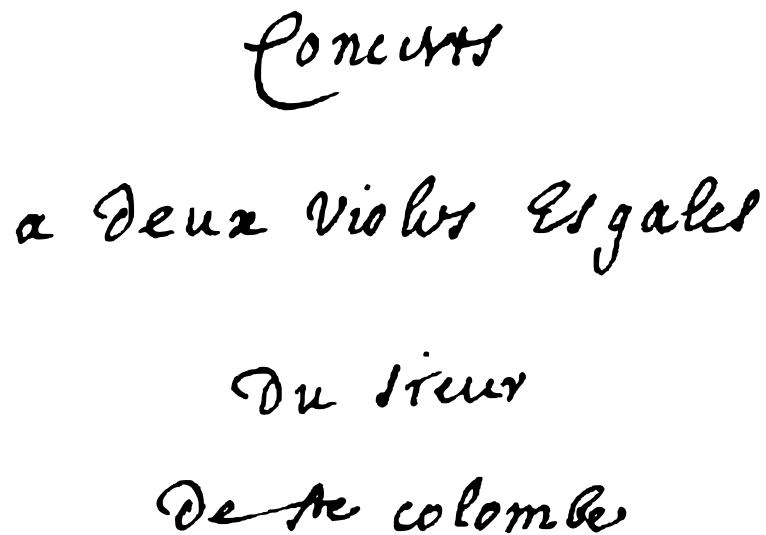 Concerts
a Deux Violes Esgales
Du sieur
De ste colombe